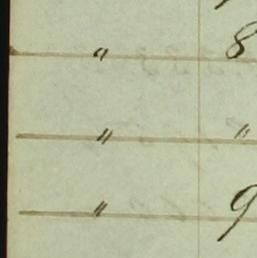 " 8
" "
" 9